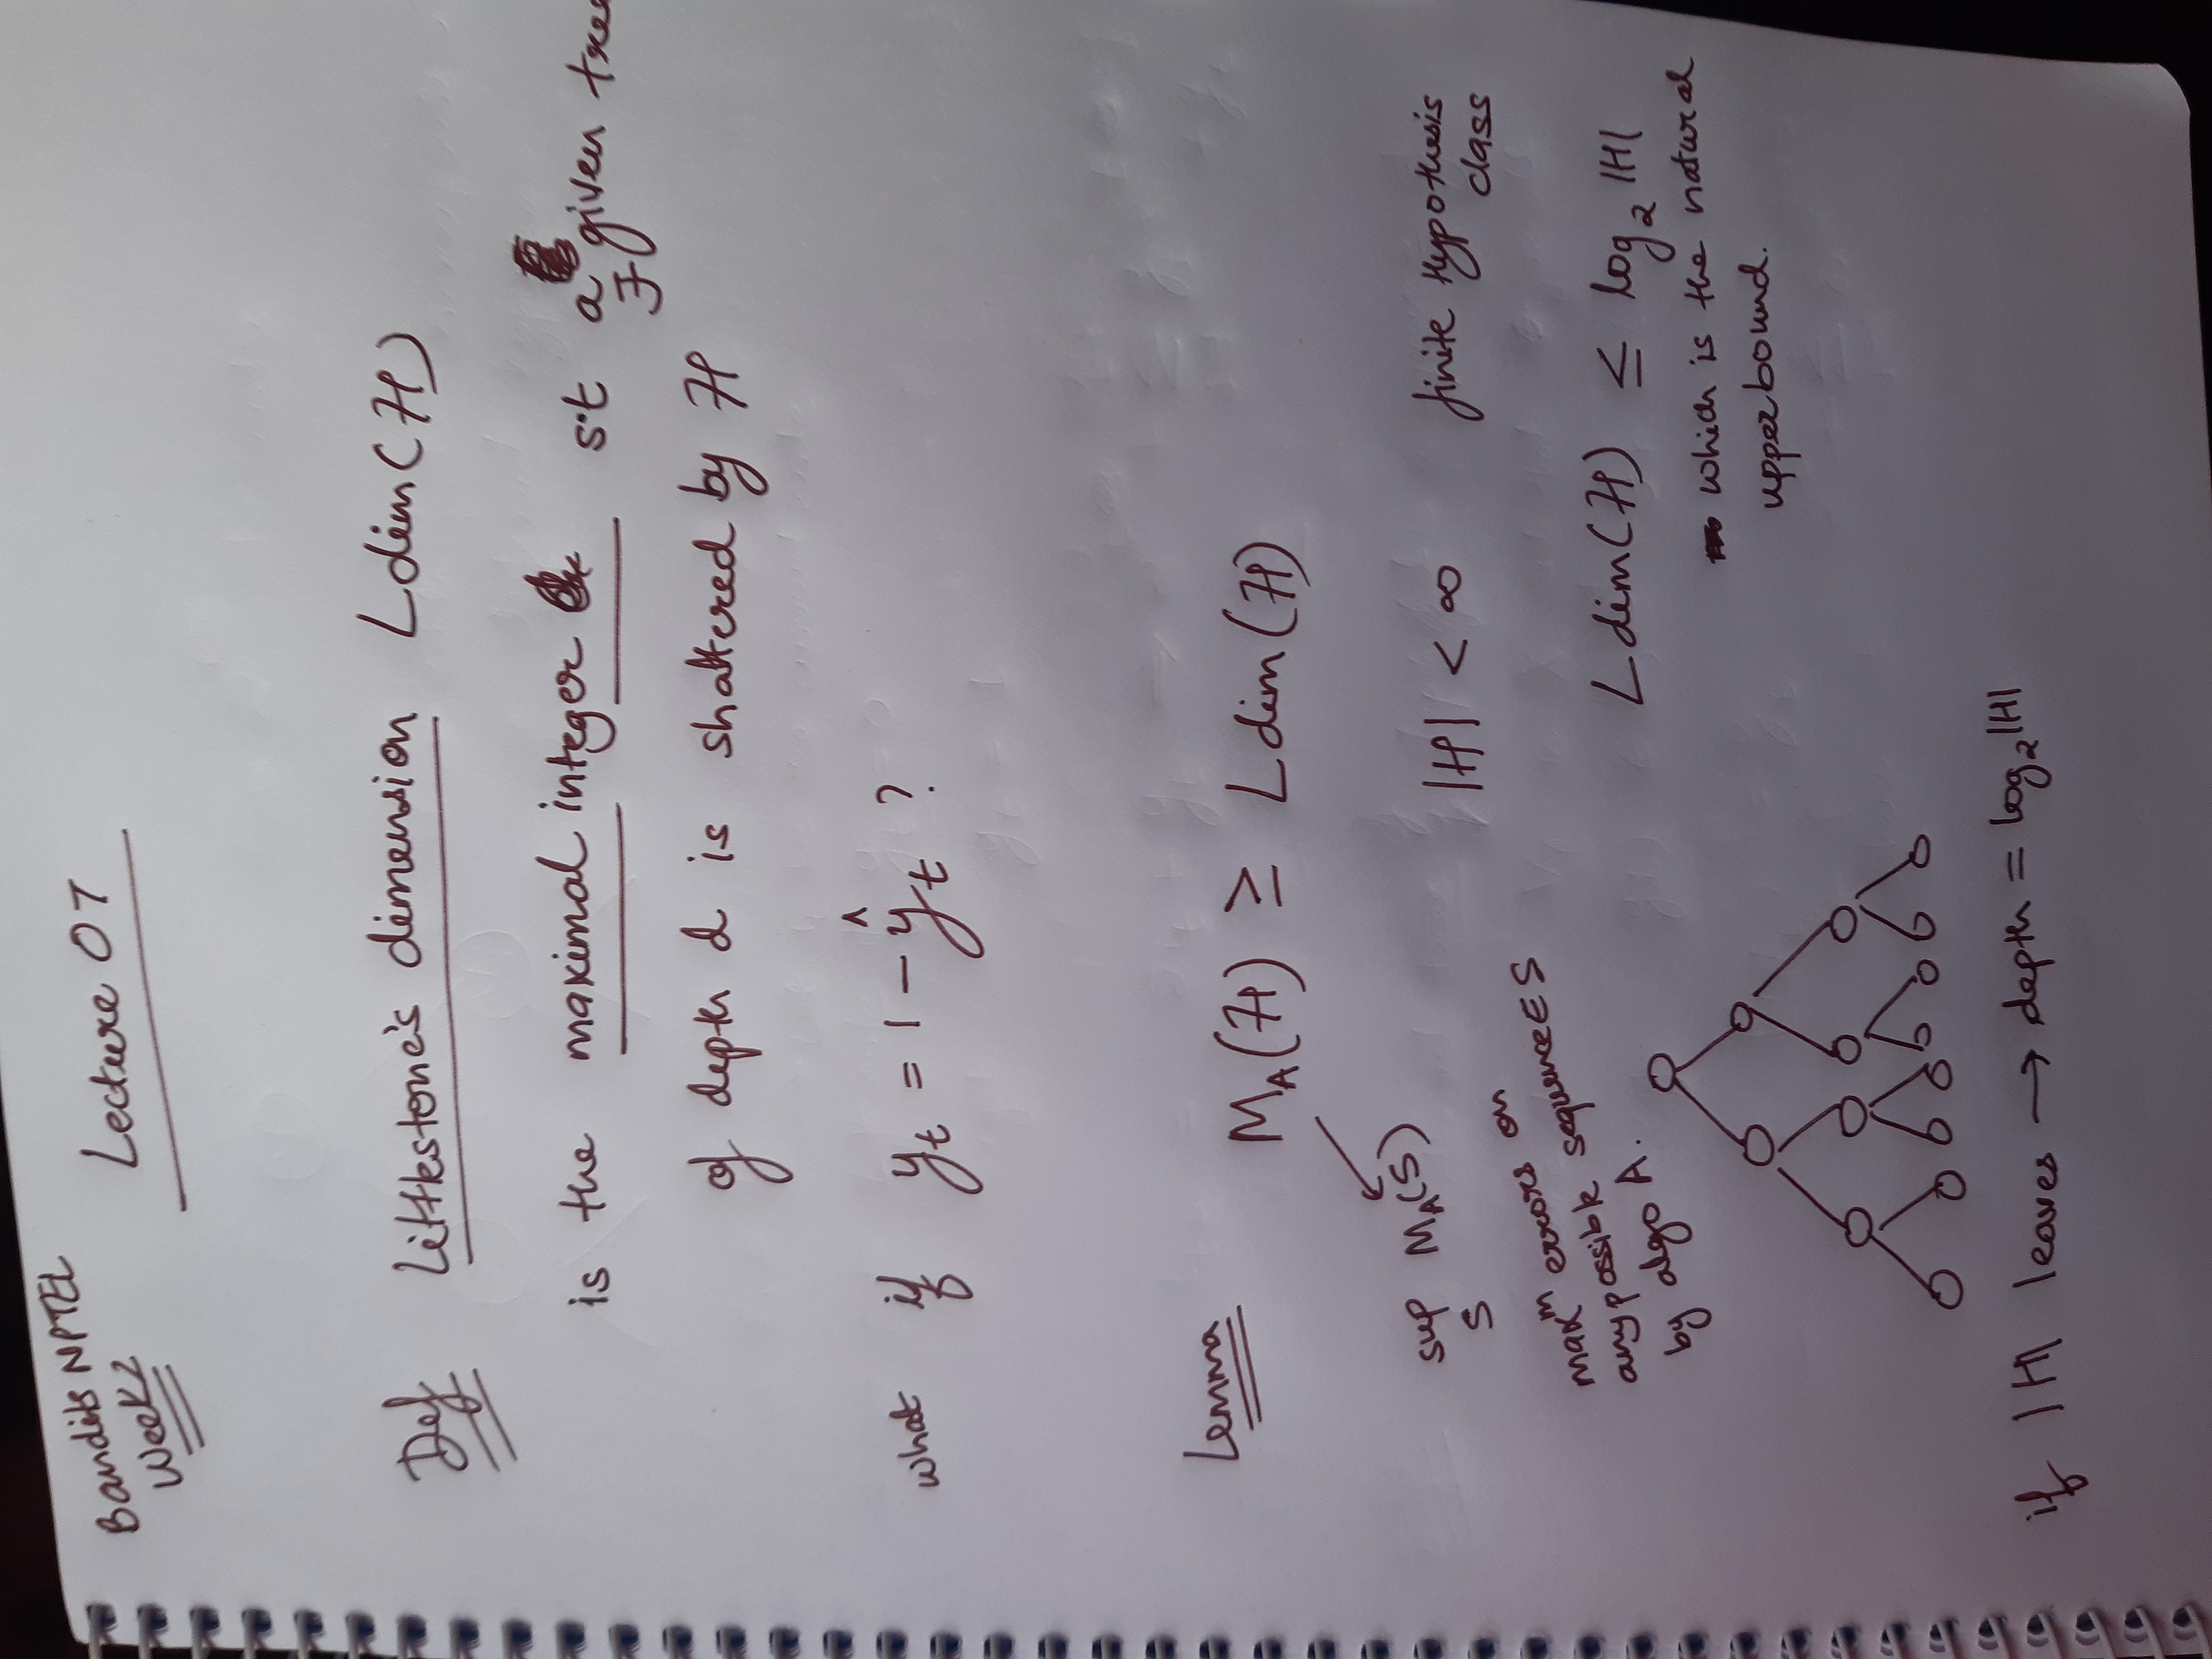 Bandits NPTEL
Week 2
Lecture 07
Def Littlestone's dimension Ldim(H)
is the maximal integer s.t a given tree
∃
of depth d is shattered by H
what if y_t = 1 - ŷ_t ?
Lemma
M_A(H) ≥ Ldim(H)
sup M_A(S)
S
|H| < ∞ finite Hypothesis
class
max^m errors on
any possible sequence ∈ S
by algo A.
Ldim(H) ≤ log_2 |H|
which is the natural
upperbound.
if |H| leaves → depth = log_2 |H|